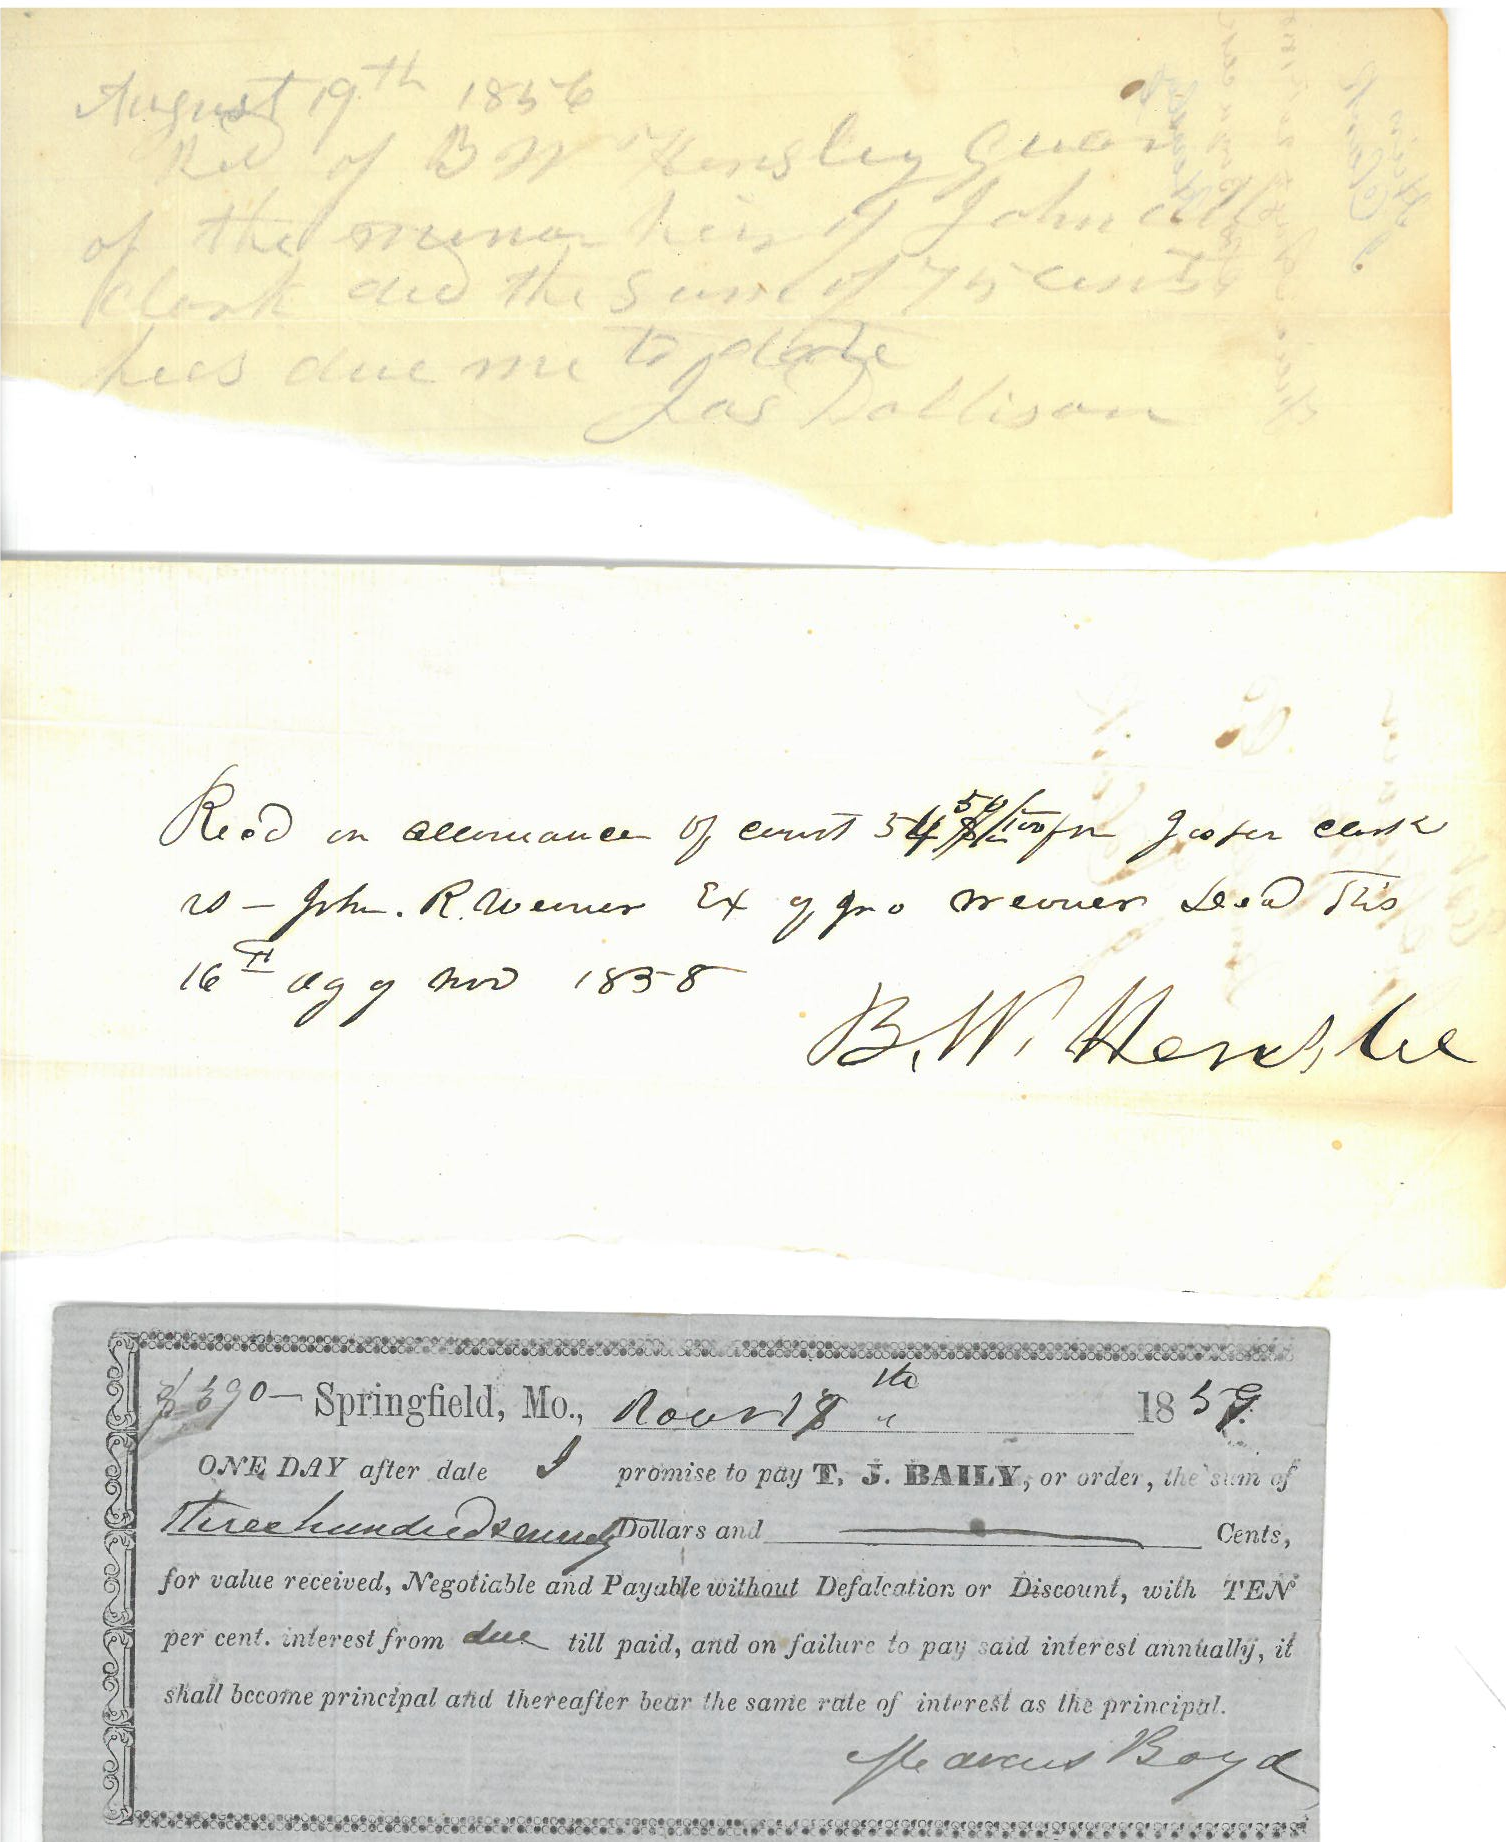 August 19th 1856
Recd of B W Hensley Guar
of the minor heirs of John
Clark decd the sum of 75 cents
fees due me to date
Jas Dollison
Recd on allowance of court 54 50/100 for clark
vs - John. R. Weaver Ex of Jno weaver Decd This
16th of Nov 1858
B. W. Henslee
$ 390 — Springfield, Mo., 18 th " 1859.
ONE DAY after date I promise to pay T. J. BAILY, or order, the sum of
three hundred & ninety Dollars and — Cents,
for value received, Negotiable and Payable without Defalcation or Discount, with TEN
per cent. interest from due till paid, and on failure to pay said interest annually, it
shall become principal and thereafter bear the same rate of interest as the principal.
Marcus Boyd